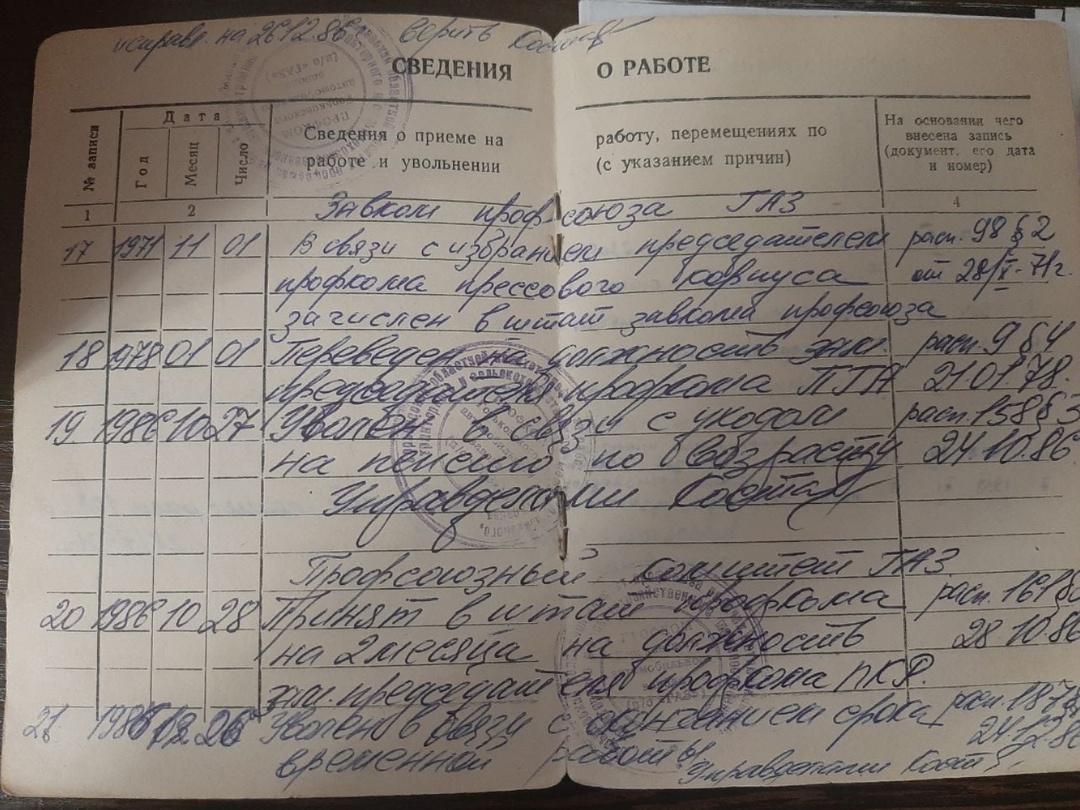 исправл. на 26.12.86г. верить
СВЕДЕНИЯ О РАБОТЕ
№ записи
Дата
Год
Месяц
Число
Сведения о приеме на работу, перемещениях по
работе и увольнении (с указанием причин)
На основании чего
внесена запись
(документ, его дата
и номер)
1 2 4
Завком профсоюза ГАЗ
17 1971 11 01 В связи с избранием председателем расп. 98 § 2
профкома прессового корпуса от 28/X-71г.
зачислен в штат завкома профсоюза
18 1978 01 01 Переведен на должность зам. расп. 9 § 4
председателя профкома ПТА 21.01.78.
19 1986 10 27 Уволен в связи с уходом расп. 158 § 3
на пенсию по возрасту 24.10.86
Управделами
Профсоюзный комитет ГАЗ
20 1986 10 28 Принят в штат профкома расп. 161
на 2 месяца на должность 28.10.86
зам. председателя профкома ПКР.
21 1986 12 26 Уволен в связи с окончанием срока расп. 187
временной работы 24.12.86
Управделами